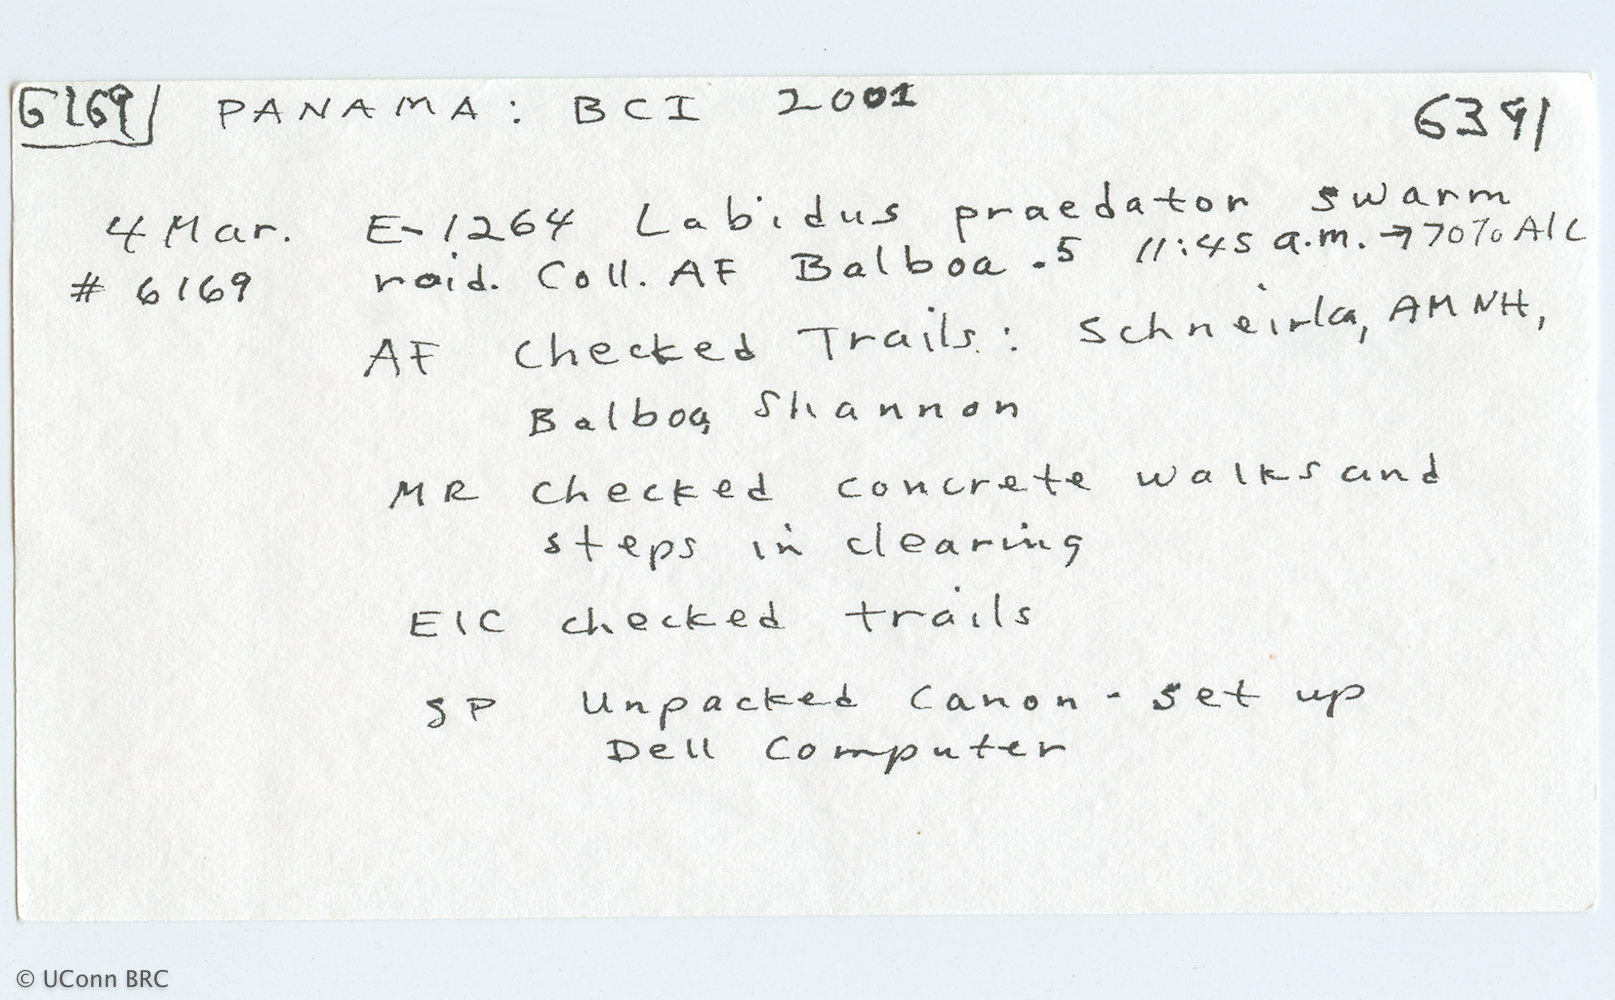 6169 PANAMA: BCI 2001 6391
4 Mar. E-1264 Labidus praedator swarm
# 6169 raid. Coll. AF Balboa .5 11:45 a.m. → 70% Alc
AF Checked Trails: Schneirla, AMNH,
Balboa, Shannon
MR Checked concrete walks and
steps in clearing
EIC checked trails
SP Unpacked Canon - set up
Dell Computer
© UConn BRC